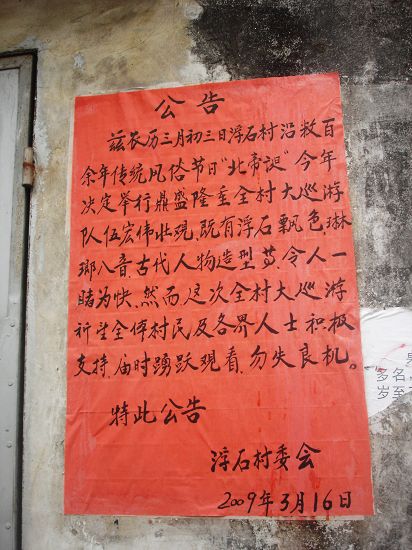 公告
兹农历三月初三日浮石村沿数百
余年传统风俗节日"北帝诞"今年
决定举行鼎盛隆重全村大巡游
队伍宏伟壮观,既有浮石飘色,琳
瑯八音,古代人物造型等,令人一
睹为快,然而这次全村大巡游
祈望全体村民及各界人士积极
支持,届时踴跃观看,勿失良机。
特此公告
浮石村委会
2009年3月16日
多名,
岁至